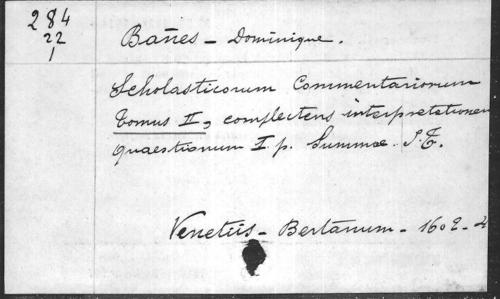 284
22
1
Bañes - Dominique.
Scholasticorum Commentariorum
Tomus II, complectens interpretationem
quaestionum I. p. Summae. S. T.
Venetiis - Bertanum - 1602 - 4